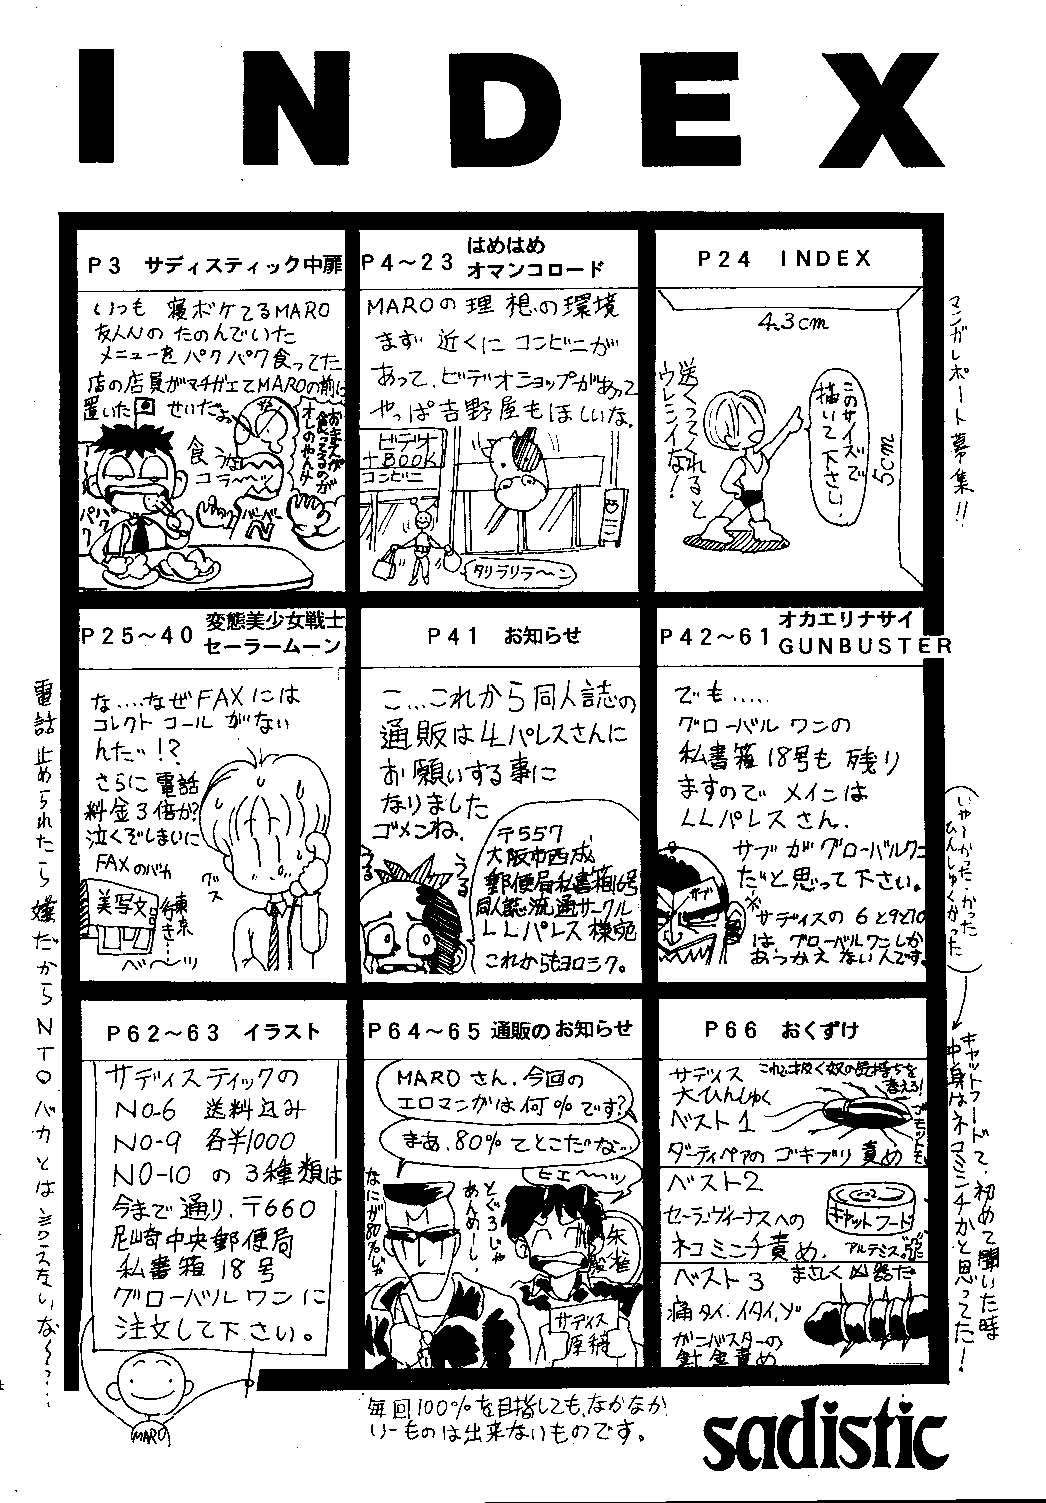 INDEX
P3 サディスティック中扉
いつも 寝ボケてるMARO
友人んの たのんでいた
メニューを パクパク食ってた
店の店員がマチガエてMAROの前に
置いた せいだぉ
おまえが
食ってるのが
オレのやんけ
食うな
コラ〜〜ッ
パクパク
P4〜23 はめはめ
オマンコロード
MAROの理想の環境
まず 近くに コンビニが
あって、ビデオショップがあって
やっぱ吉野屋もほしいな。
ビデオ
+BOOK
コンビニ
タリラリラ〜ン
P24 INDEX
4.3cm
5cm
このサイズで
描いて下さい。
送ってくれると
ウレシイな!
マンガレポート募集!!
P25〜40 変態美少女戦士
セーラームーン
な....なぜFAXには
コレクトコールがない
んだ!!?
さらに電話
料金3倍か?
泣くぞしまいに
FAXのバカ
グス
美写文
東京
行き…
ベ〜ンッ
P41 お知らせ
こ...これから同人誌の
通販はLLパレスさんに
お願いする事に
なりました
ゴメンね.
うるうる
〒557
大阪市西成
郵便局私書箱16号
同人誌流通サークル
LLパレス 様宛
これからもヨロシク。
P42〜61 オカエリナサイ
GUNBUSTER
でも.....
グローバルワンの
私書箱18号も 残り
ますので メインは
LLパレスさん.
サブがグローバルワン
だと思って下さい。
サブ
※サディスの6と9と10
は、グローバルワンしか
あつかえないんです。
電話止められたら嫌だからNTOバカとは言えないな〜…
いや〜かったかった
ひんしゅくかった
P62〜63 イラスト
サディスティックの
NO-6 送料込み
NO-9 各半1000
NO-10 の3種類は
今まで通り、〒660
尼崎中央郵便局
私書箱18号
グローバルワンに
注文して下さい。
MARO
P64〜65 通販のお知らせ
MAROさん、今回の
エロマンガは何%です?
まあ、80%てとこだな…
ヒエ〜〜ッ
なにが80%じゃ
とぐろじゃ
あんめーし
朱雀
サディス
原稿
P66 おくずけ
サディス
大ひんしゅく
ベスト1
ダーティペアの ゴキブリ責め
これに抜く奴の気持ちを
考えろ!
ベスト2
セーラーヴィーナスへの
ネコミンチ責め.
キャットフード
アルテミス
ベスト3
まさしく凶器だ
痛タイ、イタイ、ゾ
ガンバスターの
針金責め
キャットフードで、初めて聞いた時
中身はネコミンチかと思ってた!
毎回100%を目指しても、なかなか
いーものは出来ないものです。
sadistic